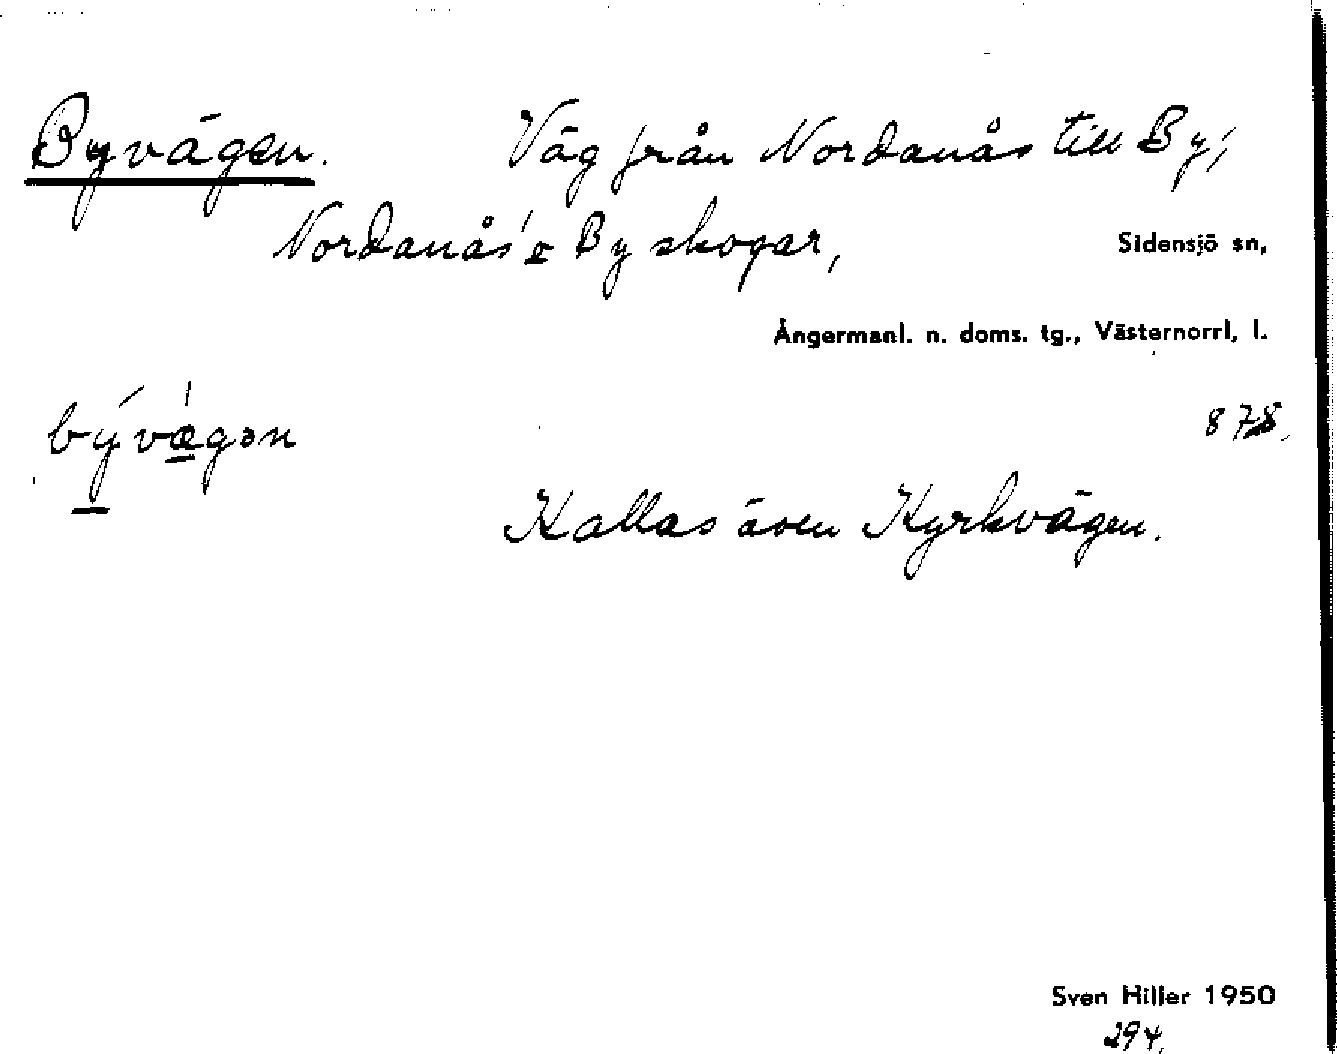 Byvägen. Väg från Nordanås till By;
Nordanås' o By skogar, Sidensjö sn,
Ångermanl. n. doms. tg., Västernorrl, l.
bývǽgən 878.
Kallas även Kyrkvägen.
Sven Hiller 1950
294.